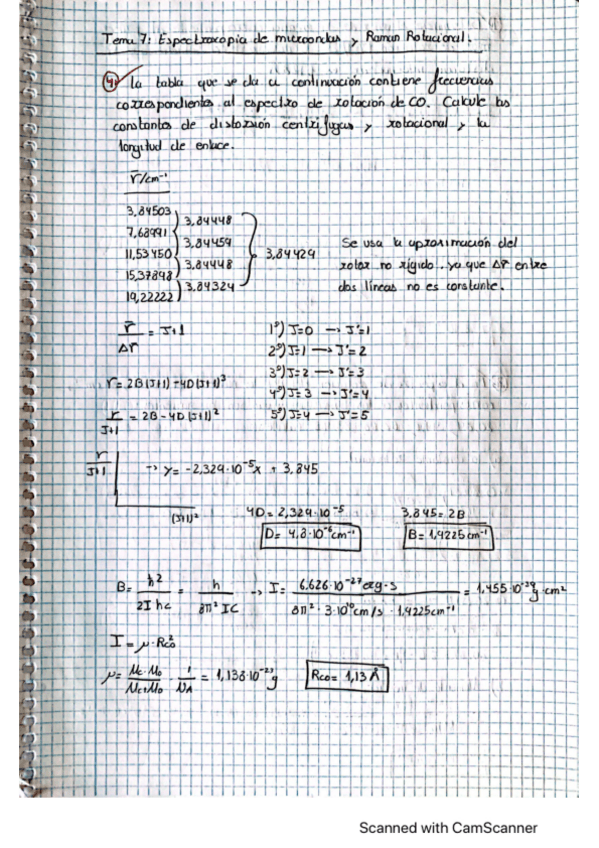 Tema 7: Espectroscopia de microondas y Raman Rotacional.
4 La tabla que se da a continuación contiene frecuencias
correspondientes al espectro de rotación de CO. Calcule las
constantes de distorsión centrífugas y rotacional y la
longitud de enlace.
r̄/cm⁻¹
3,84503
3,84448
7,68991
3,84459
11,53450
3,84429
3,84448
15,37898
3,84324
19,22222
Se usa la aproximación del
rotor no rígido, ya que Δr̄ entre
dos líneas no es constante.
r̄/Δr̄ = J+1
1º) J=0 → J'=1
2º) J=1 → J'=2
3º) J=2 → J'=3
4º) J=3 → J'=4
5º) J=4 → J'=5
r = 2B(J+1) - 4D(J+1)³
r/J+1 = 2B - 4D(J+1)²
r/J+1
→ y = -2,329·10⁻⁵x + 3,845
(J+1)²
4D = 2,329·10⁻⁵
3,845 = 2B
D = 4,8·10⁻⁶cm⁻¹
B = 1,9225 cm⁻¹
B = ħ²/2Ihc = h/8π²IC → I = 6.626·10⁻²⁷erg·s/8π²·3·10¹⁰cm/s·1,9225cm⁻¹ = 1,455·10⁻³⁹g·cm²
I = μ·Rco²
μ = Mc·Mo/Mc+Mo · 1/NA = 1,138·10⁻²³g
Rco = 1,13 Å
Scanned with CamScanner